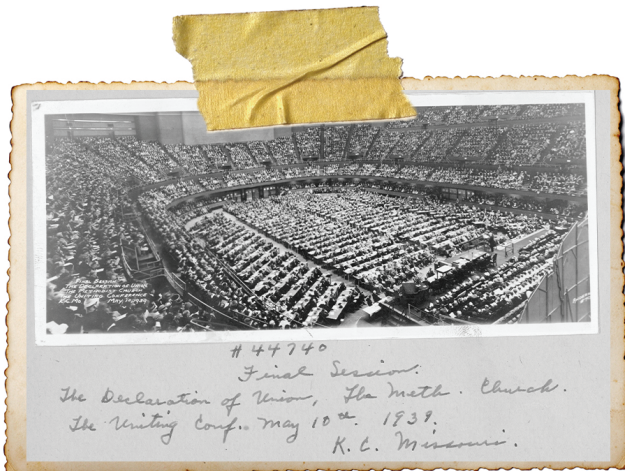 FINAL SESSION
THE DECLARATION OF UNION
THE METHODIST CHURCH
THE UNITING CONFERENCE
K.C. MO. MAY 10, 1939
# 44740
Final Session.
The Declaration of Union, The Meth. Church.
The Uniting Conf. May 10th. 1939.
K. C. Missouri.